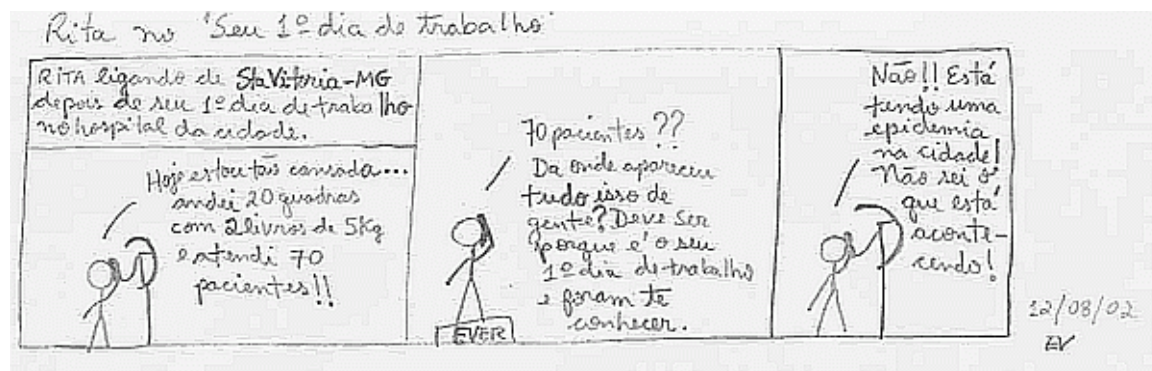 Rita no "Seu 1º dia de trabalho"
RITA ligando de Sta Vitoria-MG
depois de seu 1º dia de trabalho
no hospital da cidade.
Hoje estou tão cansada...
andei 20 quadras
com 2 livros de 5Kg
e atendi 70
pacientes!!
70 pacientes??
Da onde apareceu
tudo isso de
gente? Deve ser
porque é o seu
1º dia de trabalho
e foram te
conhecer.
EVER
Não!! Está
tendo uma
epidemia
na cidade!
Não sei o
que está
aconte-
cendo!
12/08/02
EV